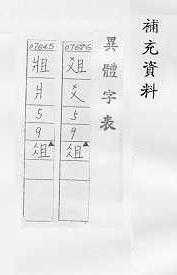 補充資料
異體字表
07686
爼
爻
5
9
俎
07685
爿
5
9
俎